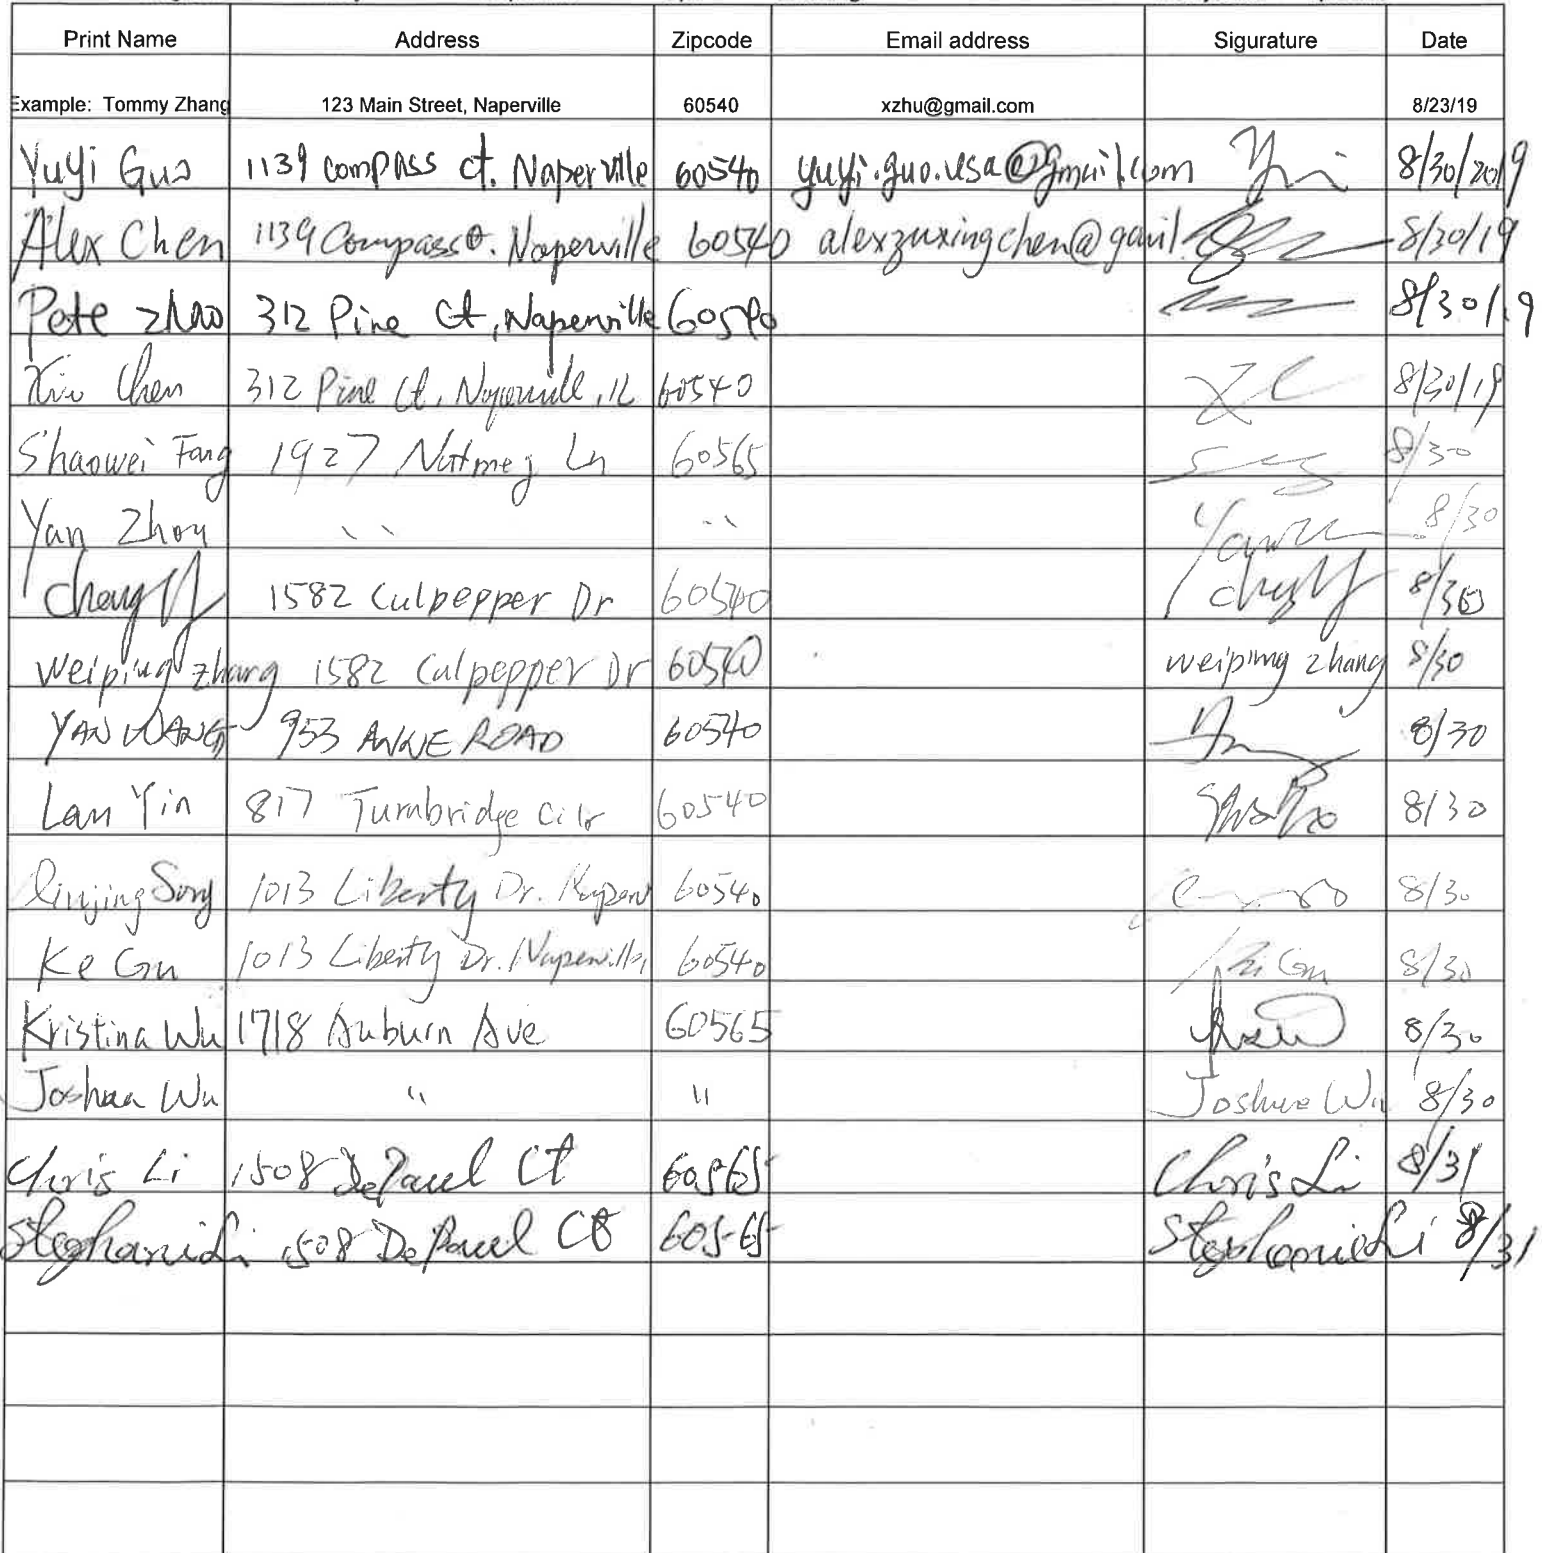 Print Name Address Zipcode Email address Sigurature Date
Example: Tommy Zhang 123 Main Street, Naperville 60540 xzhu@gmail.com 8/23/19
Yuyi Guo 1139 compass ct. Naperville 60540 yuyi.guo.usa@gmail.com 8/30/2019
Alex Chen 1139 Compass Ct. Naperville 60540 alexzuxingchen@gmail. 8/30/19
Pete Zhao 312 Pine Ct, Naperville 60540 8/30/19
Chen 312 Pine Ct, Naperville, IL 60540 8/30/19
Shaowei Fang 1927 Nutmeg Ln 60565 8/30
Yan Zhou " " 8/30
1582 Culpepper Dr 60540 8/30
Weiping Zhang 1582 Culpepper Dr 60540 weiping zhang 8/30
YAN WANG 953 ANNE ROAD 60540 8/30
Lan Yin 817 Turnbridge 60540 8/30
Song 1013 Liberty Dr. 60540 8/30
Ke Gu 1013 Liberty Dr. Naperville 60540 Ke Gu 8/30
Kristina Wu 1718 Auburn Ave 60565 8/30
Joshua Wu " " Joshua Wu 8/30
Chris Li 1508 DePaul Ct 60565 Chris Li 8/31
Stephanie Li 1508 DePaul Ct 60565 Stephanie Li 8/31